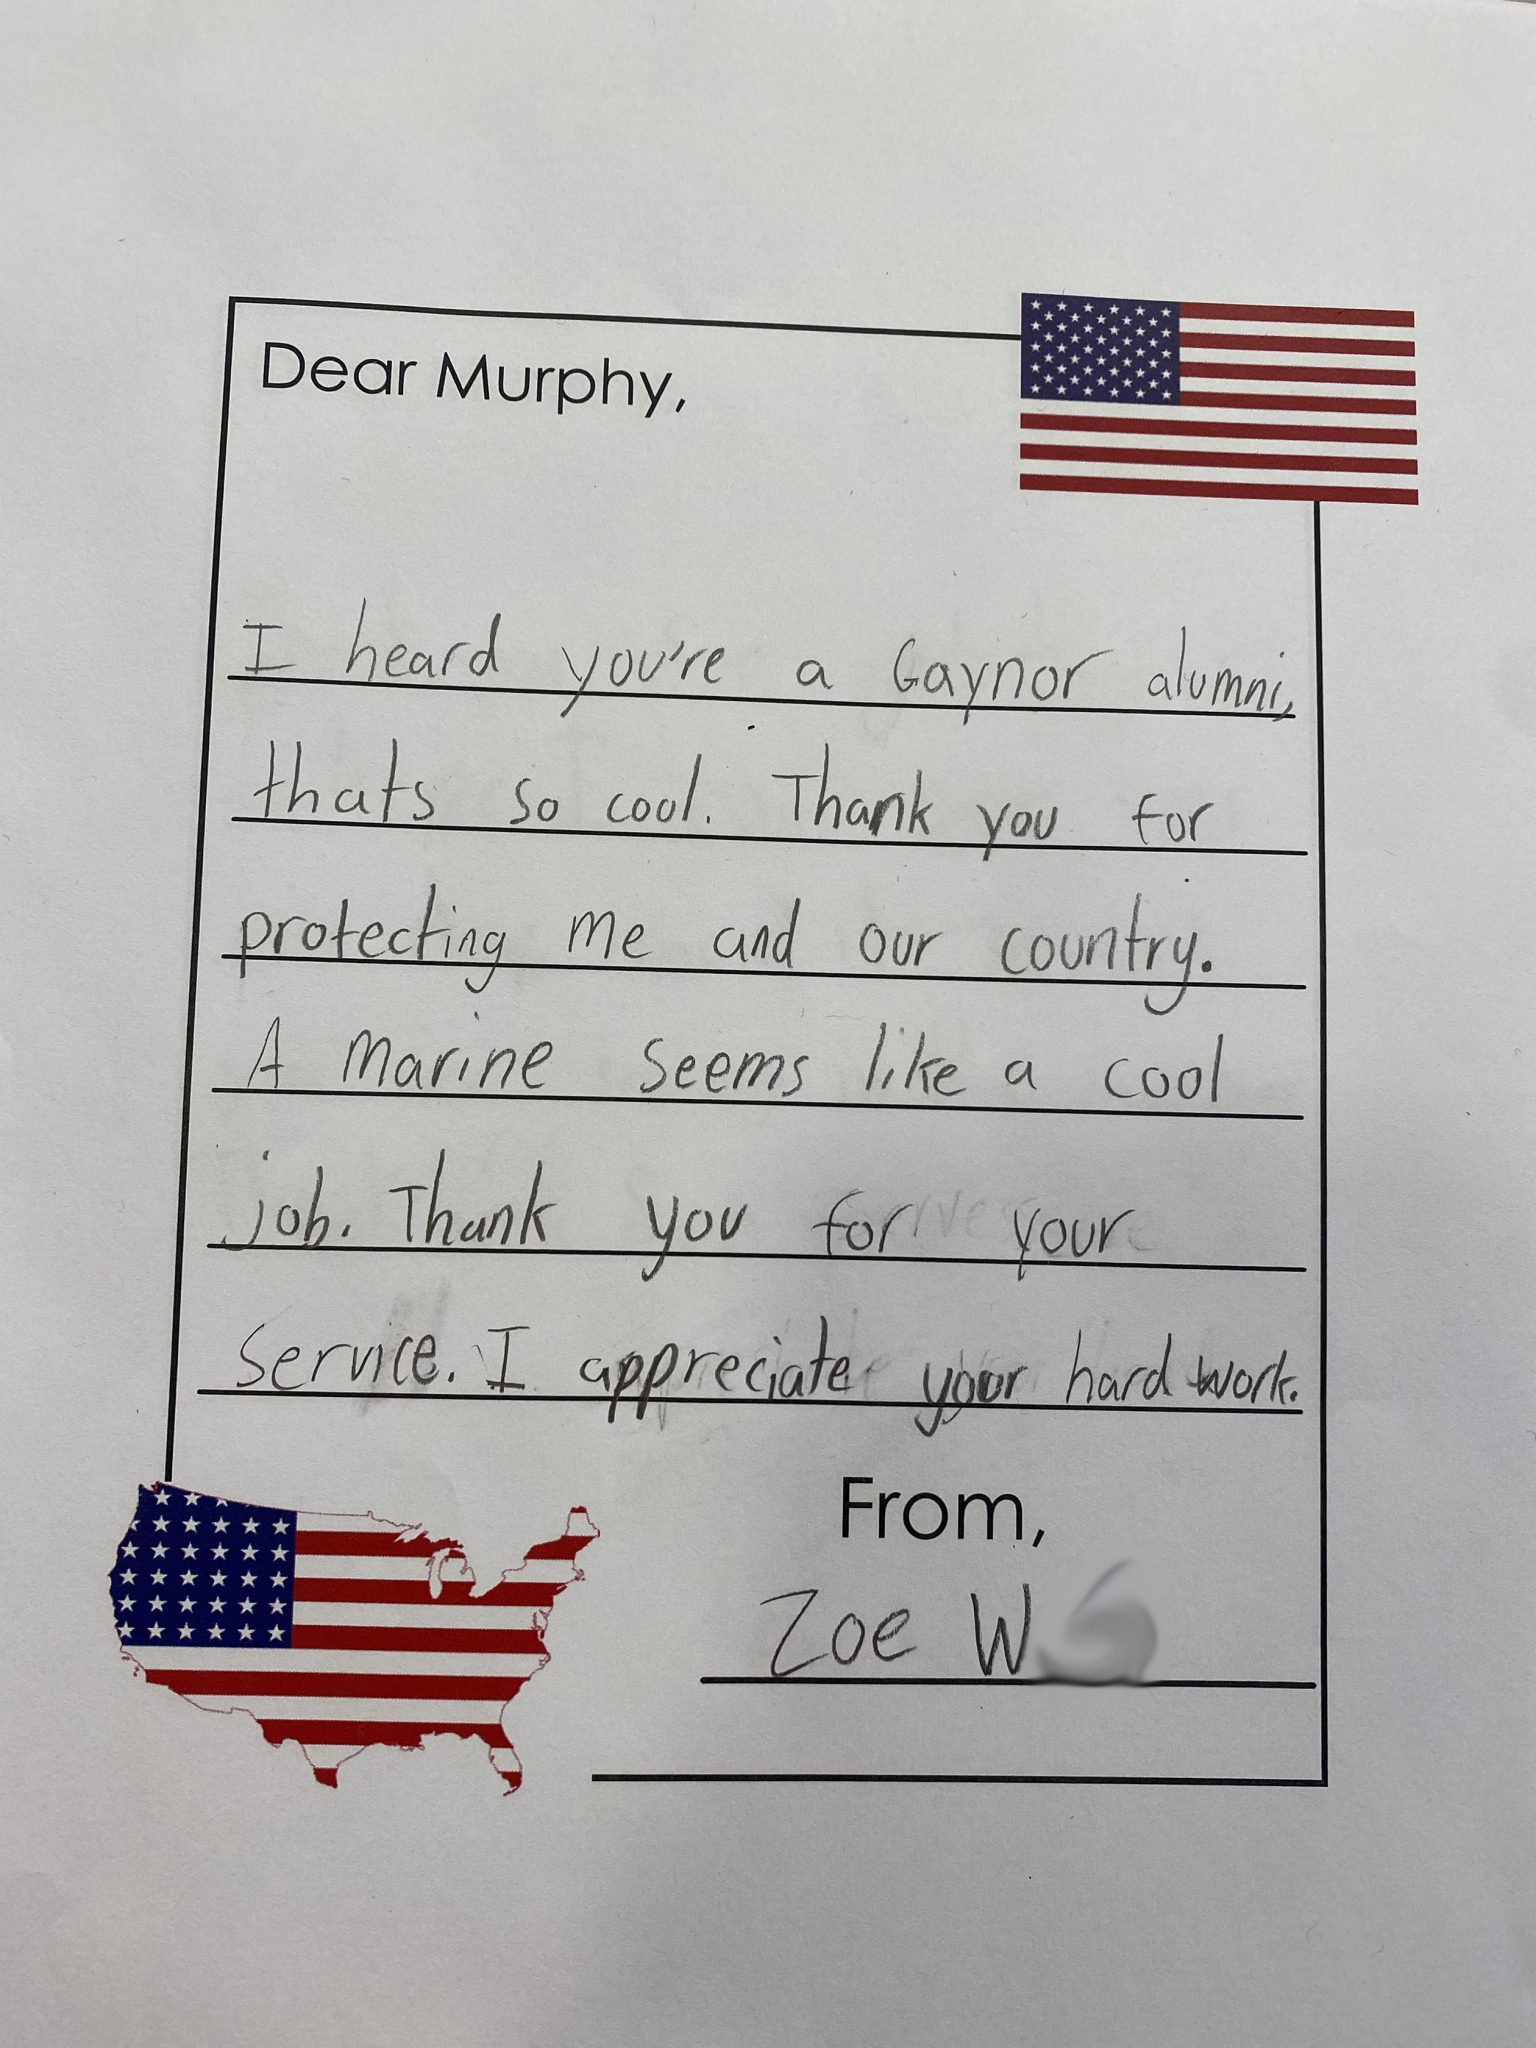 Dear Murphy,
I heard you're a Gaynor alumni,
thats so cool. Thank you for
protecting me and our country.
A Marine seems like a cool
job. Thank you for your
service. I appreciate your hard work.
From,
Zoe W